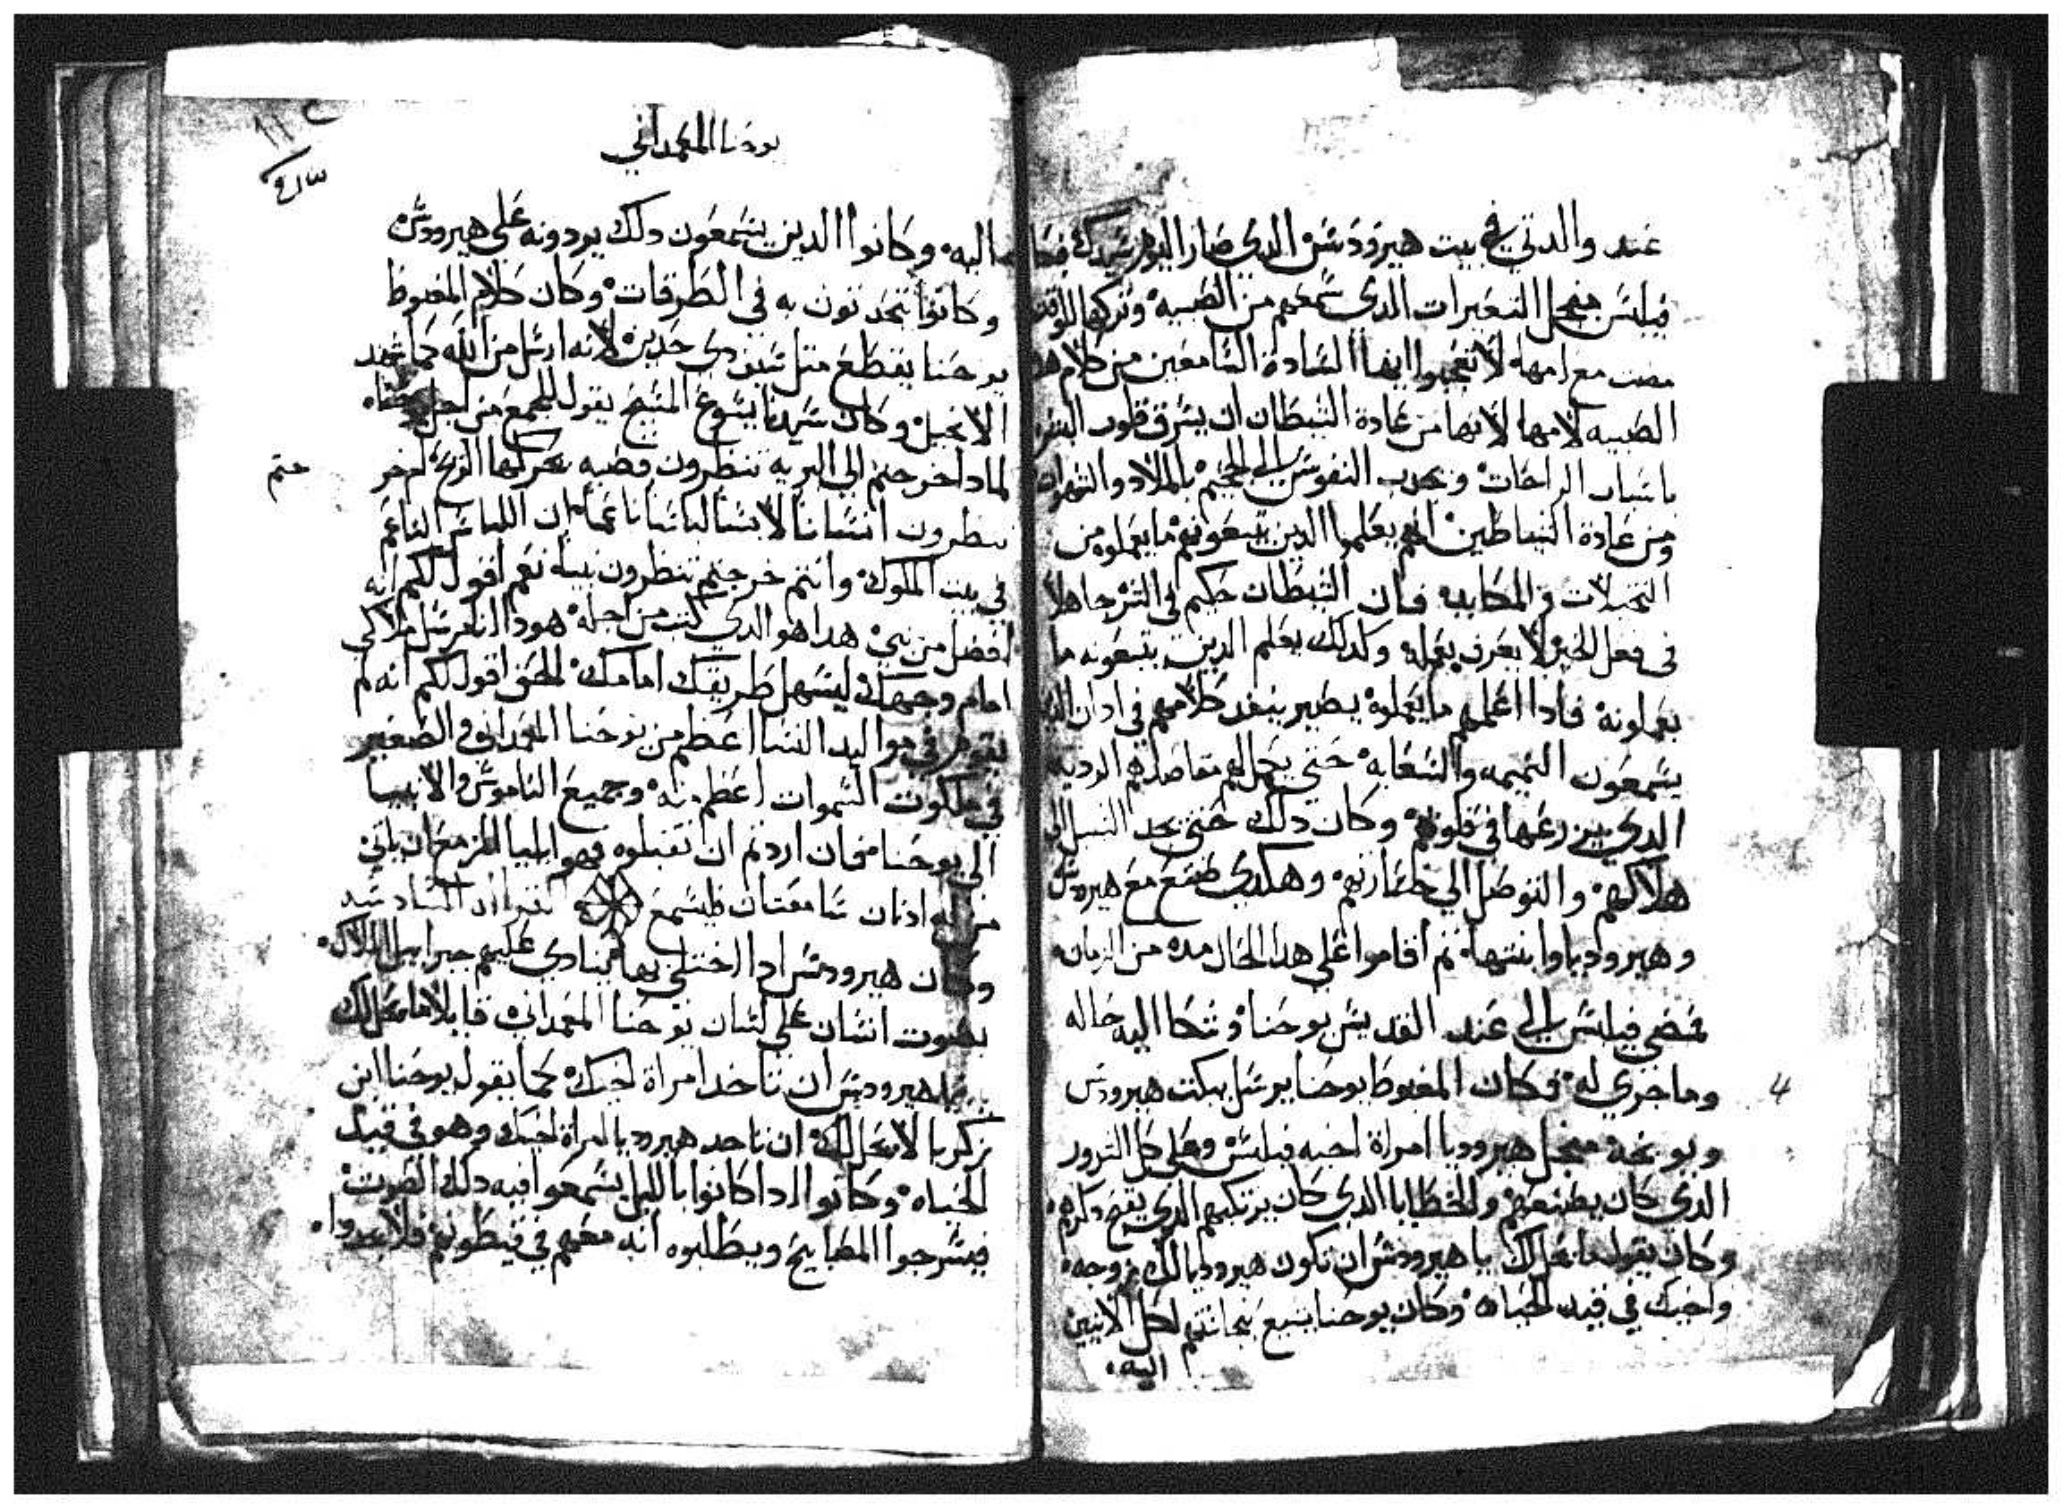 عند والدتي في بيت هيرودس الدي صار اليوم
فيلبس منجل التعيرات الدي سمعهم من الصبيه وتركها للوقت
مضت مع امها لا تعجبوا ايها السادة السامعين من كلام هده
الصبيه لامها لانها من عادة الشيطان ان يسرق قلوب البشر
باسباب الراحات ويجدب النفوس الي الجحيم بالملاد والشهوات
ومن عادة الشياطين انهم يعلموا الدين يتبعونهم ما يعملوه من
التخيلات والمكايد فان الشيطان حكيم في الشر جاهلا
في فعل الخير لا يعرف يعمله وكدلك يعلم الدين يتبعونه ما
يعملونه فادا اعلمهم ما يعملوه يصير ينفد كلامهم في ادان
يسمعون النميمه والسعايه حتي يكمل لهم مقاصدهم الرديه
الدي يزرعها في قلوبهم وكان دلك حتي يجد السبيل الي
هلاكهم والتوصل الي خسارتهم وهكدي صنع مع هيرودس
وهيروديا وابنتها تم اقاموا علي هدا الحال مده من الزمان
فمضي فيلبس الي عند القديس يوحنا وشكا اليه حاله
وما جري له فكان المغبوط يوحنا يرسل يبكت هيرودس
ويوبخه منجل هيروديا امراة اخيه فيلبس وعلي كل الشرور
الدي كان يصنعهم والخطايا الدي كان يرتكبهم الدي يقبح دكرهم
وكان يقول ما يحل لك يا هيرودس ان تكون هيروديا لك زوجه
واخيك في قيد الحياه وكان يوحنا يتبع لكل الاتيين
اليه
يوحنا المعمداني
اليه وكانوا الدين يسمعون دلك يردونه علي هيرودس
وكانوا يتحدتون به في الطرقات وكان كلام المغبوط
يوحنا يقطع متل سيف دي حدين لانه ارسل من الله كما شهد
الانجيل وكان سيدنا يسوع المسيح يقول للجمع من اجل يوحنا
لمادا خرجتم الي البريه تنظرون قصبه تحركها الريح ام خر
جتم
تنظرون انسانا لابسا لباسا ناعما ان اللباس الناعم
في بيت الملوك وانتم خرجتم تنظرون نبيا نعم اقول لكم انه
افضل من نبي هدا هو الدي كتب من اجله هودا انا مرسل ملاكي
امام وجهك ليسهل طريقك امامك الحق اقول لكم انه لم
يقوم في مواليد النسا اعظم من يوحنا المعمداني والصغير
في ملكوت السموات اعظم منه وجميع الناموس والانبيا
الي يوحنا فان اردتم ان تقبلوه فهو ايليا المزمع ان ياتي
من له ادنان سامعتان فليسمع
وكان هيرودس ادا اختلي بها فينادي عليهم جبراييل الملاك
بصوت انسان علي لسان يوحنا المعمداني قايلا ما يحل لك
يا هيرودس ان تاخد امراة اخيك كما يقول يوحنا ابن
زكريا لا يحل لك ان تاخد هيروديا امراة اخيك وهو في قيد
الحياه وكانوا ادا كانوا بالليل يسمعوا فيه دلك الصوت
فيسرجوا المصابيح ويطلبوه انه معهم في قيطونهم فلا يجدوا